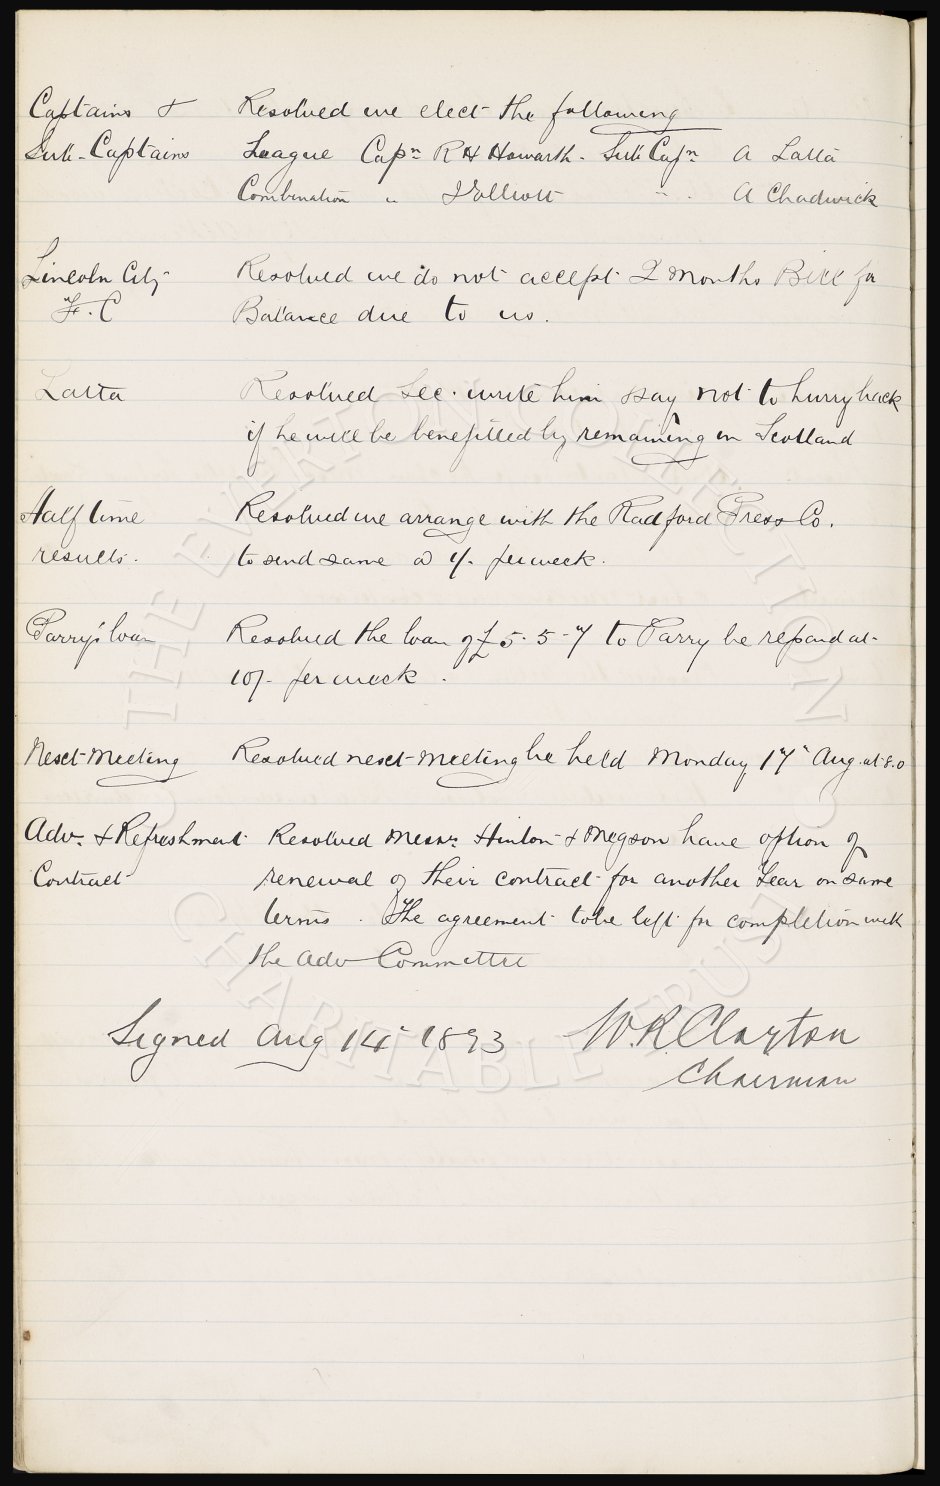 Captains & Resolved we elect the following
Sub-Captains League Capn R H Howarth. Sub Capn A Latta
Combination " J Elliott " . A Chadwick
Lincoln City Resolved we do not accept 2 months Bill for
F.C Balance due to us.
Latta Resolved Sec. write him say not to hurry back
if he will be benefitted by remaining in Scotland
Half time Resolved we arrange with the Radford Press Co.
results. to send same @ 1/- per week.
Parry's loan Resolved the loan of £5-5-7 to Parry be repaid at
10/- per week.
Next Meeting Resolved next meeting be held Monday 17th Aug. at 8.0
Adv. & Refreshment Resolved Messrs Hinton & Megson have option of
Contract renewal of their contract for another Year on same
terms. The agreement to be left for completion with
the Adv Committee
Signed Aug 14th 1893 W.R. Clayton
Chairman
THE EVERTON COLLECTION
CHARITABLE TRUST